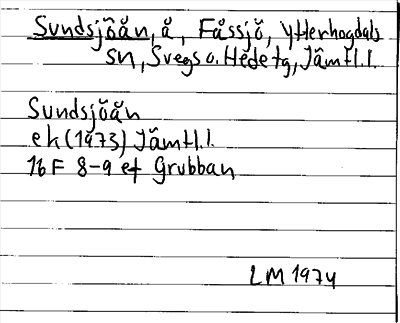 Sundsjöån, å, Fåssjö, Ytterhogdals
sn, Svegs o. Hede tg, Jämtl.l.
Sundsjöån
ek (1973) Jämtl.l.
16F 8-9 ef Grubban
LM 1974